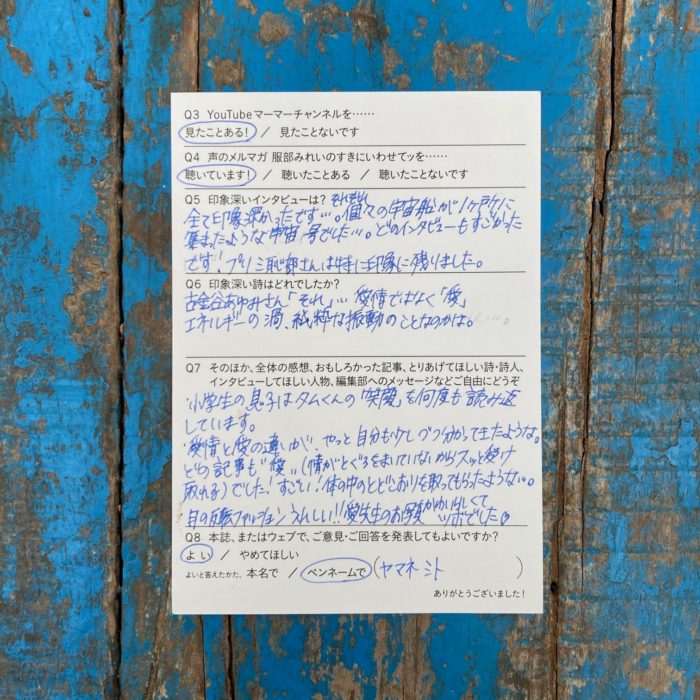 Q3 YouTubeマーマーチャンネルを……
見たことある! / 見たことないです
Q4 声のメルマガ 服部みれいのすきにいわせてッを……
聴いています! / 聴いたことある / 聴いたことないです
Q5 印象深いインタビューは? それぞれ
全て印象深かったです…。個々の宇宙船が1ヶ所に
集まったような宇宙号でした…。どのインタビューもすごかった
です!プリミ恥部さんは特に印象に残りました。
Q6 印象深い詩はどれでしたか?
古金谷あゆみさん「それ」… 愛情ではなく「愛」
エネルギーの渦、純粋な振動のことなのかな。
Q7 そのほか、全体の感想、おもしろかった記事、とりあげてほしい詩・詩人、
インタビューしてほしい人物、編集部へのメッセージなどご自由にどうぞ
・小学生の息子はタムくんの「笑顔」を何度も読み返
しています。
・愛情と愛の違いが、やっと自分も少しづつ分かってきたような。
どの記事も"愛"(情がとぐろをまいていないからスッと受け
取れる)でした!すごい!体の中のとどこおりを取ってもらったような…。
・自の反転ファッションうれしい!!愛先生のお顔がかわいくて
ツボでした♡
Q8 本誌、またはウェブで、ご意見・ご回答を発表してもよいですか?
よい / やめてほしい
よいと答えたかた、本名で / ペンネームで (ヤマネシト )
ありがとうございました!